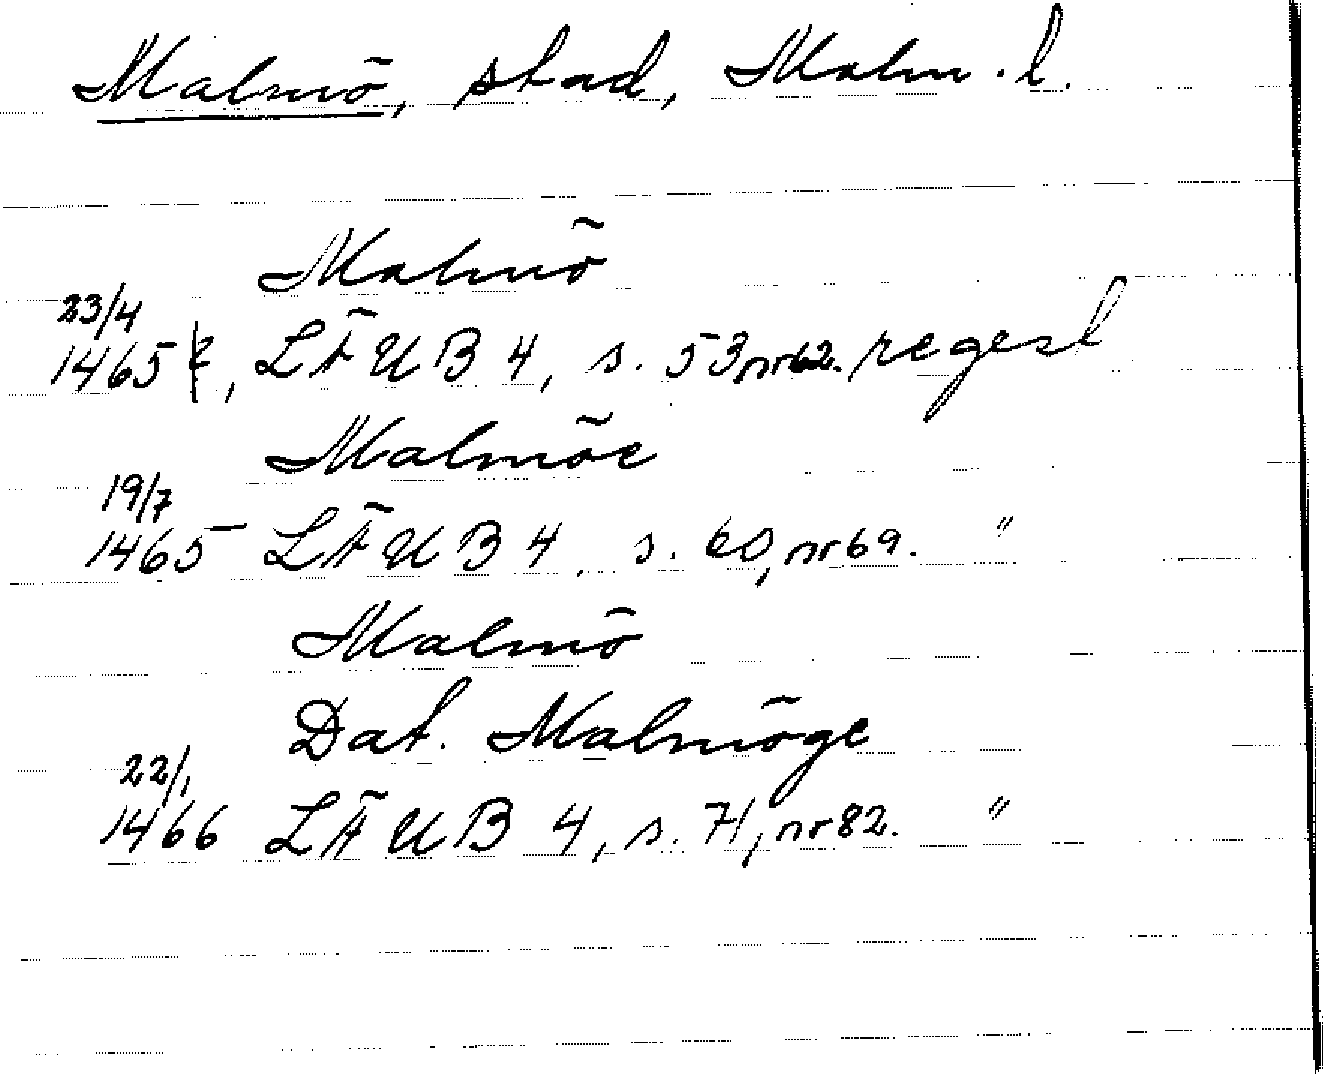 Malmö, stad, Malm. l.
Malmö
23/4
1465, LÄUB 4, s. 53, nr 62. regest
Malmöe
19/7
1465 LÄUB 4, s. 60, nr 69. "
Malmö
Dat. Malmöge
22/1
1466 LÄUB 4, s. 71, nr 82. "